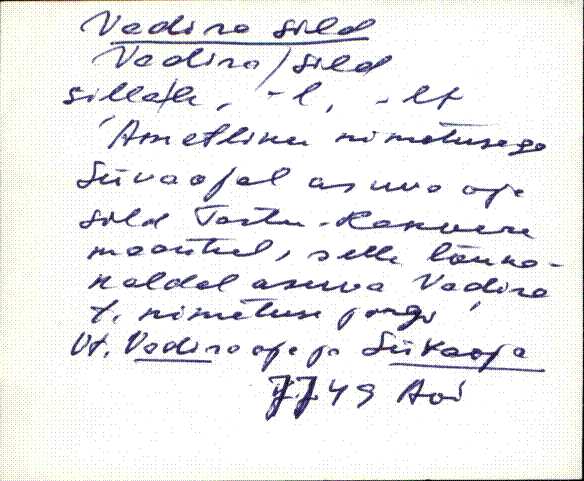 Vadira sild
Vadira/sild
sillale, -l, -lt
'Ametliku nimetusega
Süvaojal asuva oja
sild Tartu-Rakvere
maanteel, selle lõuna-
kaldal asuva Vadira
t. nimetuse järgi'
Vt. Vadira oja ja Süvaoja
JJ 49 Avi